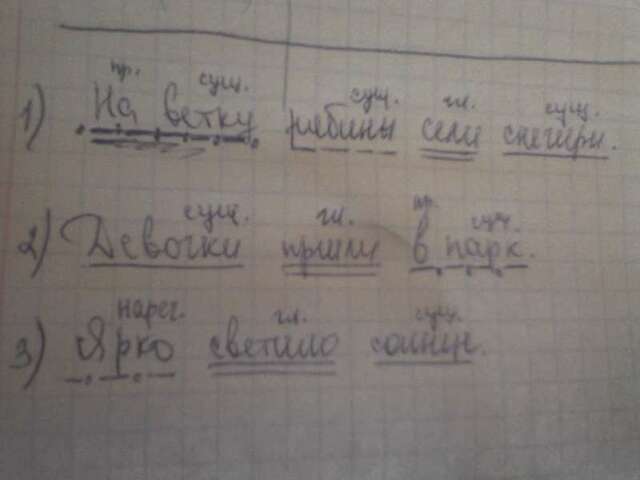 пр. сущ. сущ. гл. сущ.
1) На ветку рябины сели снегири.
сущ. гл. пр. сущ.
2) Девочки пришли в парк.
нареч. гл. сущ.
3) Ярко светило солнце.